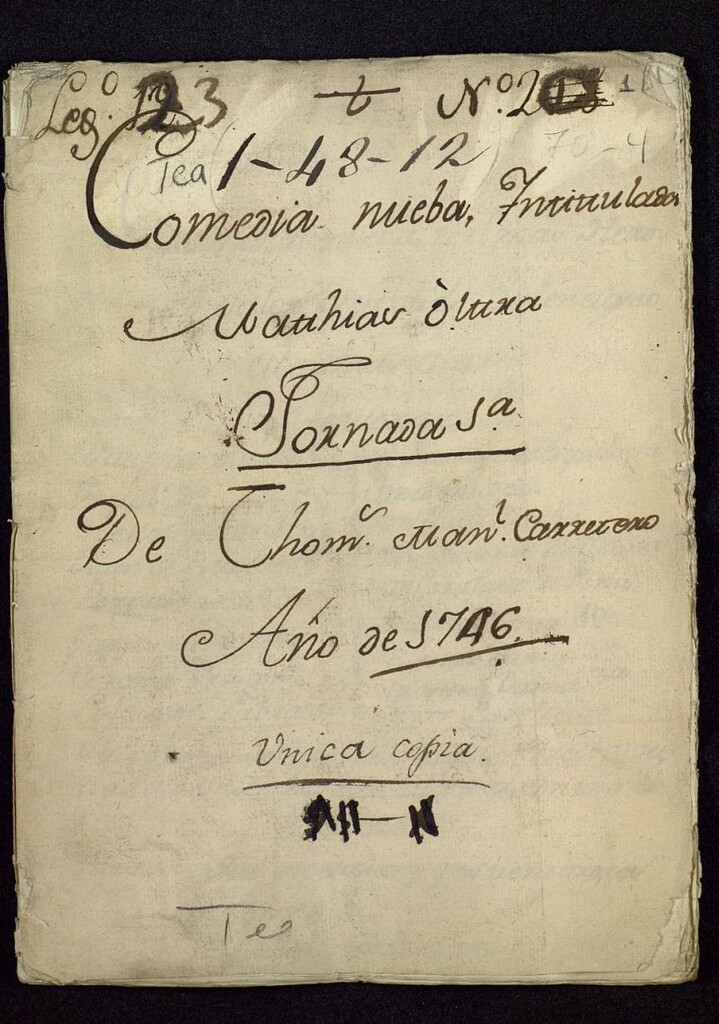 Leg.º 23 t N.º 2 1
Tea 1-48-12 70-4
Comedia nueba, Intitulada
Matthias Oltra
Jornada 1ª
De Thomˢ. Manˡ. Carretero
Año de 1746.
Vnica copia.
Tea